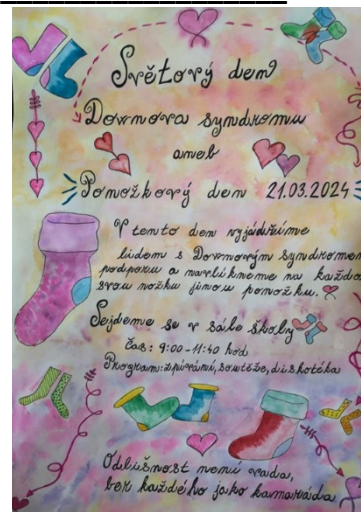 Světový den
Downova syndromu
aneb
Ponožkový den 21.03.2024
V tento den vyjádříme
lidem s Downovým syndromem
podporu a navlékneme na každou
svou nožku jinou ponožku.
Sejdeme se v sále školy
čas: 9:00-11:40 hod
Program: zpívání, soutěže, diskotéka
Odlišnost není vada,
ber každého jako kamaráda